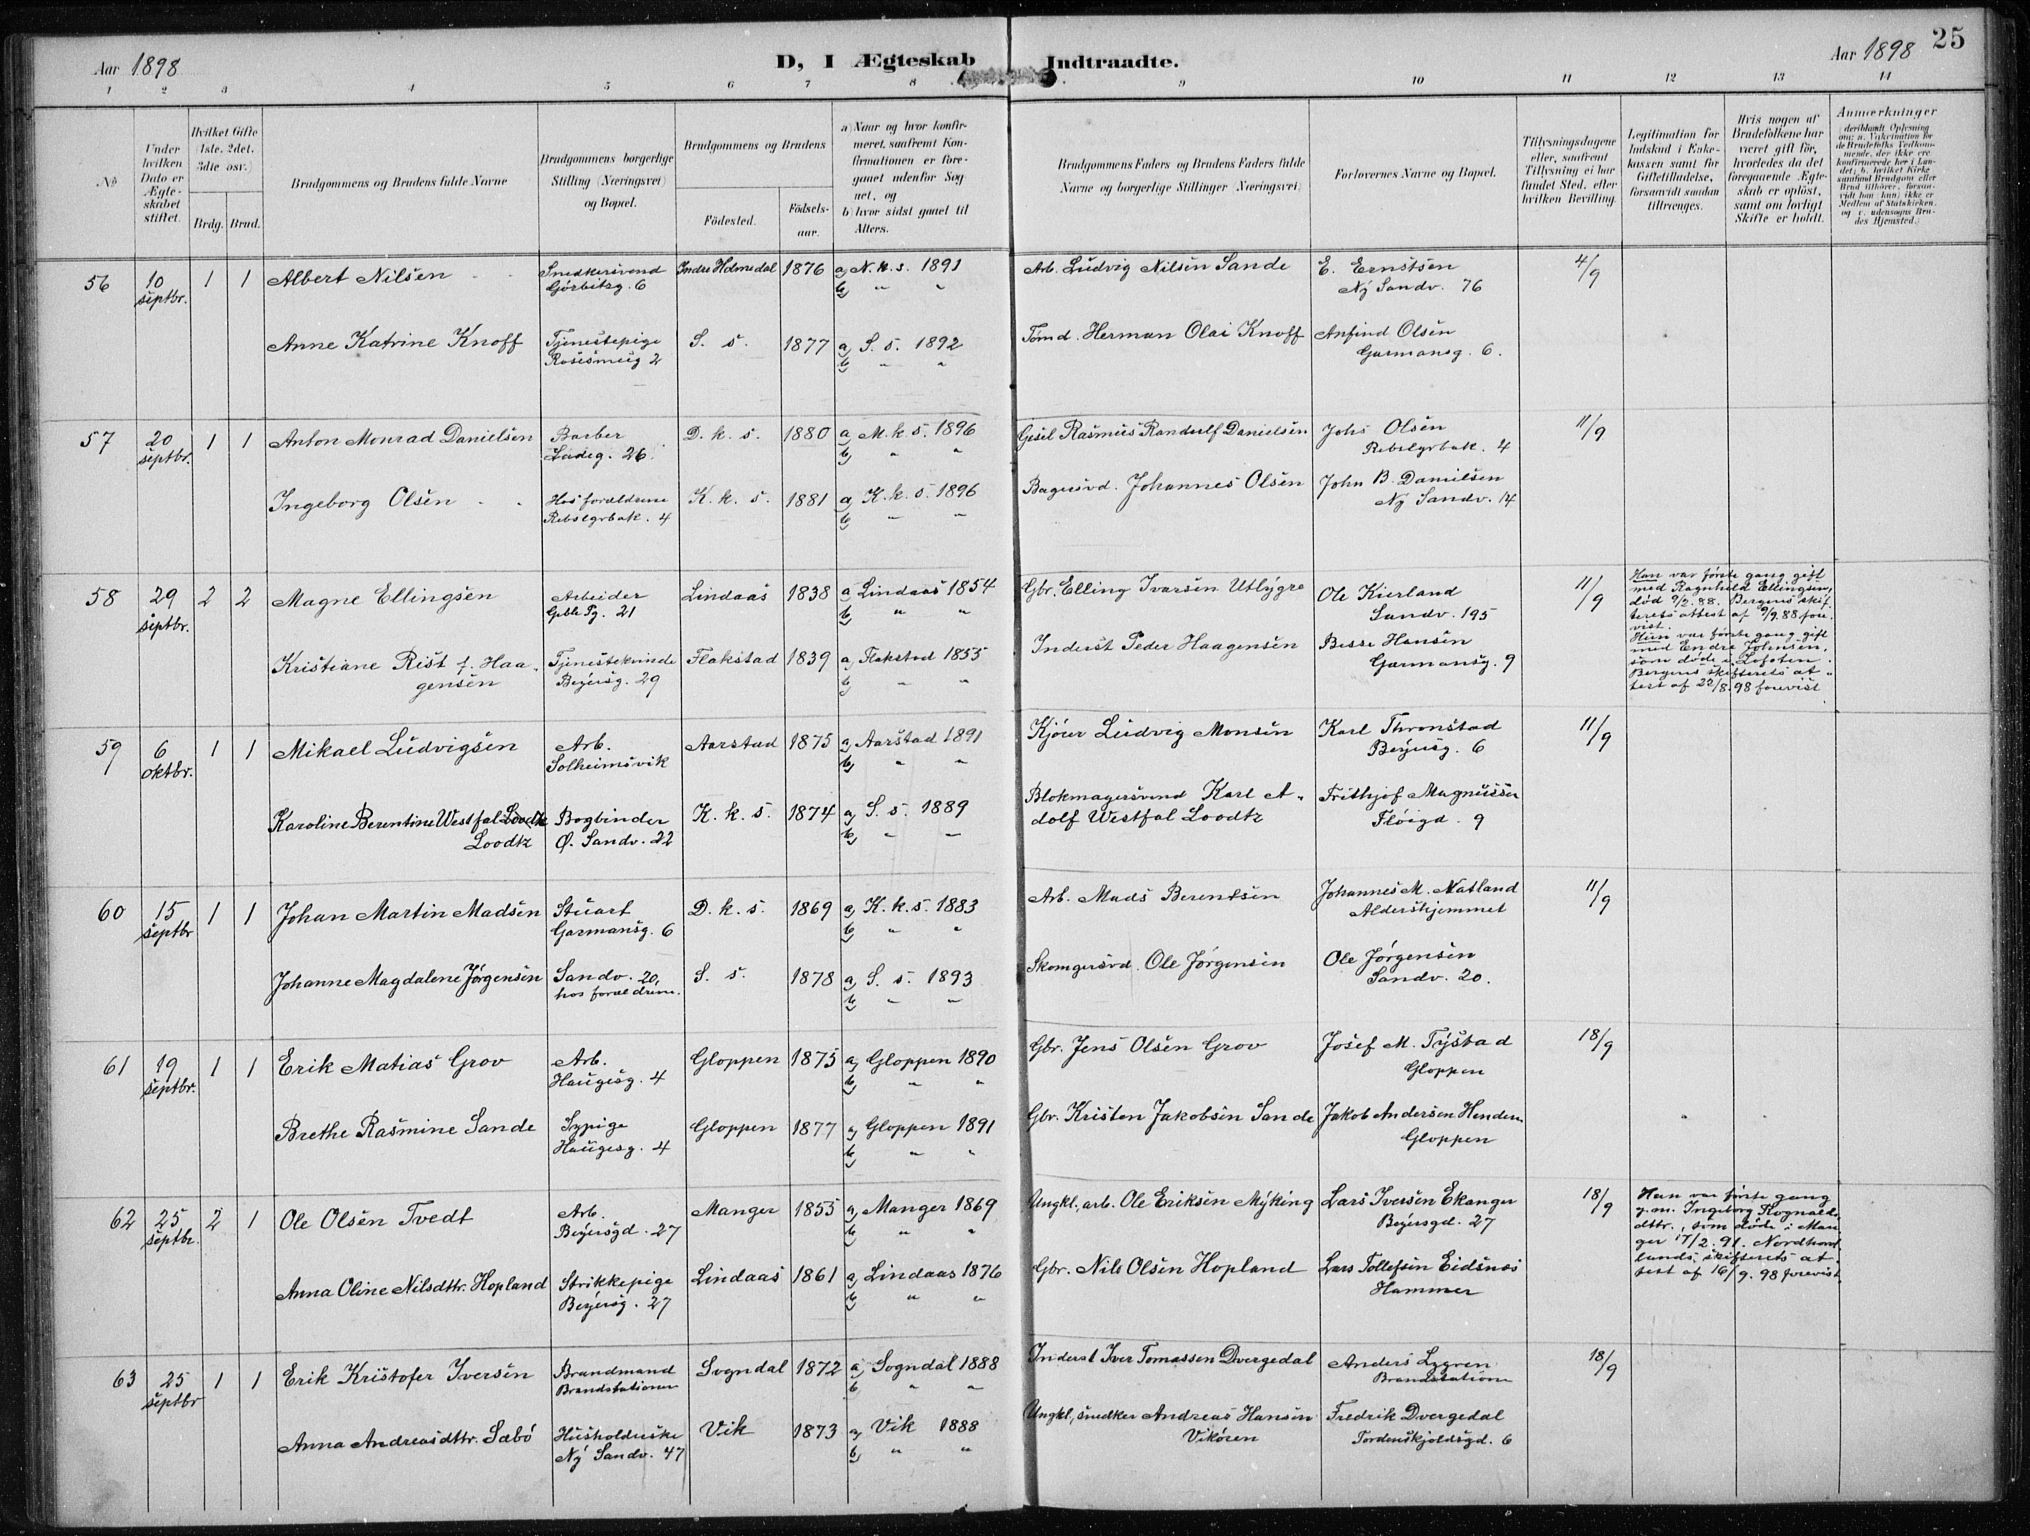 Aar 1898
D, I Ægteskab Indtraadte.
Aar 1898 25
1 2 3 4 5 6 7 8 9 10 11 12 13 14
No
Under hvilken Dato er Ægteskabet stiftet.
Hvilket Gifte (1ste. 2det. 3die osv.)
Brdg. Brud.
Brudgommens og Brudens fulde Navne
Brudgommens borgerlige Stilling (Næringsvei) og Bopæl.
Brudgommens og Brudens
Födested. Födsels-aar.
a) Naar og hvor konfirmeret, saafremt Konfirmationen er foregaaet udenfor Sognet, og
b) hvor sidst gaaet til Alters.
Brudgommens Faders og Brudens Faders fulde Navne og borgerlige Stillinger (Næringsvei)
Forlovernes Navne og Bopæl.
Tillysningsdagene eller, saafremt Tillysning ei har fundet Sted, efter hvilken Bevilling.
Legitimation for Indskud i Enkekassen samt for Giftetilladelse, forsaavidt saadan tiltrænges.
Hvis nogen af Brudefolkene har været gift för, hvorledes da det foregaaende Ægteskab er oplöst, samt om lovligt Skifte er holdt.
Anmerkninger
56 10 septbr. 1 1 Albert Nilsen Snedkersvend Görbitsg. 6 Indre Holmedal 1876 a) N. k. s. 1891 b) " " Arb. Ludvig Nilsen Sande E. Ernstsen Ny Sandv. 76 4/9
Anne Katrine Knoff Tjenestepige Rosesmug 2 S. s. 1877 a) S. s. 1892 b) " " Tömd. Herman Olai Knoff Anfind Olsen Garmansg. 6.
57 20 septbr. 1 1 Anton Monrad Danielsen Barber Ladeg. 26. D. k. s. 1880 a) M. k. s. 1896 b) " " Gesel Rasmus Randulf Danielsen Johs Olsen Rebslgrbak. 4 11/9
Ingeborg Olsen Hos forældrene Rebslgrbak. 4 K. k. s. 1881 a) K. k. s. 1896 b) " " Bagersvd. Johannes Olsen John B. Danielsen Ny Sandv. 14
58 29 septbr. 2 2 Magne Ellingsen Arbeider Geble Pg. 21 Lindaas 1838 a) Lindaas 1854 b) " " Gbr. Elling Ivarsen Utlygre Ole Kierland Sandv. 195 11/9
Han var første gang gift med Ragnhild Ellingsen, død 9/2. 88. Bergens skifterets attest af 9/9. 88 forevist.
Kristiane Rist f. Haagensen Tjenestekvinde Beyersg. 29 Flakstad 1839 a) Flakstad 1855 b) " " Inderst Peder Haagensen Besse Hansen Garmansg. 9
Hun var første gang gift med Endre Johnsen, som døde i Lofoten. Bergens skifterets attest af 22/8. 98 forevist
59 6 oktbr. 1 1 Mikael Ludvigsen Arb. Solheimsvik Aarstad 1875 a) Aarstad 1891 b) " " Kjörer Ludvig Monsen Karl Thronstad Beyersg. 6 11/9
Karoline Berentine Westfal Loodtz Loodtz Bogbinder Ø. Sandv. 22 K. k. s. 1874 a) S. s. 1889 b) " " Blokmagersvend Karl Adolf Westfal Loodtz Frithjof Magnussen Fløigd. 9
60 15 septbr 1 1 Johan Martin Madsen Stuart Garmansg. 6 D. k. s. 1869 a) K. k. s. 1883 b) " " Arb. Mads Berentsen Johannes M. Natland Aldershjemmet 11/9
Johanne Magdalene Jørgensen Sandv. 20, hos forældrene. S. s. 1878 a) S. s. 1893 b) " " Skomgersvd. Ole Jørgensen Ole Jørgensen Sandv. 20.
61 19 septbr. 1 1 Erik Matias Grov Arb. Haugesg. 4 Gloppen 1875 a) Gloppen 1890 b) " " Gbr. Jens Olsen Grov Josef M. Tystad Gloppen 18/9
Brethe Rasmine Sande Sypige Haugesg. 4 Gloppen 1877 a) Gloppen 1891 b) " " Gbr. Kristen Jakobsen Sande Jakob Andersen Henden Gloppen
62 25 septbr. 2 1 Ole Olsen Tvedt Arb. Beyersgd. 27 Manger 1855 a) Manger 1869 b) " " Ungkl. arb. Ole Eriksen Myking Lars Iversen Ekanger Beyersgd. 27 18/9
Han var første gang g. m. Ingeborg Rognaldsdttr., som døde i Manger 17/2. 91. Nordhordlands skifterets attest af 16/9. 98 forevist.
Anna Oline Nilsdttr. Hopland Strikkepige Beyersg. 27 Lindaas 1861 a) Lindaas 1876 b) " " Gbr. Nils Olsen Hopland Lars Tollefsen Eidsnes Hammer
63 25 septbr 1 1 Erik Kristofer Iversen Brandmand Brandstationen Sogndal 1872 a) Sogndal 1888 b) " " Inderst Iver Tomassen Dvergedal Anders Lygren Brandstation 18/9
Anna Andreasdttr. Sæbö Husholderske Ny Sandv. 47 Vik 1873 a) Vik 1888 b) " " Ungkl, snedker Andreas Hansen Vikören Fredrik Dvergedal Tordenskjoldsgd. 6